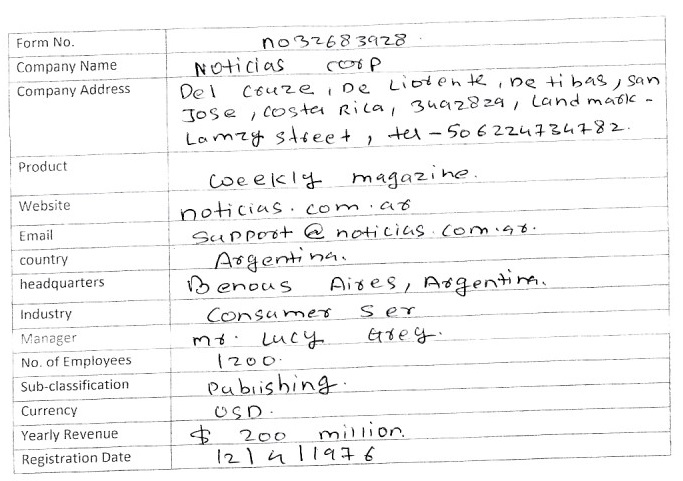 Form No. no32683928.
Company Name Noticias corp
Company Address Del Cruze, De Liotente, De tibas, san
Jose, Costa Rica, 3492829, Landmark -
Lamzy street, tel - 506224734782.
Product Weekly magazine.
Website noticias.com.ar
Email Support@noticias.com.ar.
country Argentina.
headquarters Benous Aires, Argentina.
Industry Consumer Ser
Manager mr. Lucy Grey.
No. of Employees 1200.
Sub-classification Publishing.
Currency USD.
Yearly Revenue $ 200 million.
Registration Date 12/4/1976